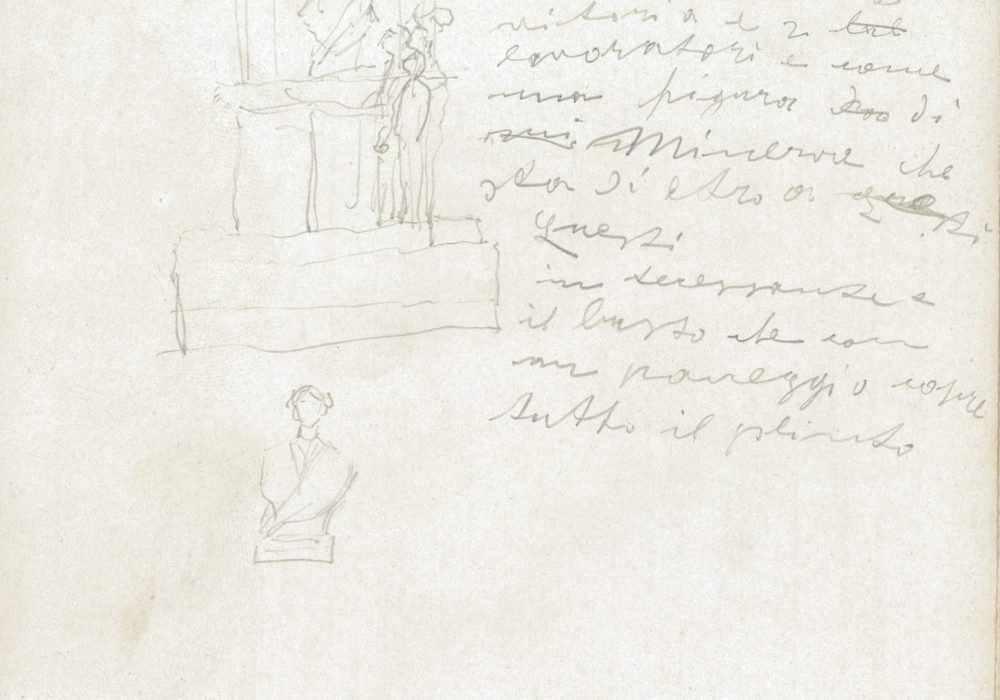 vittoria e 2
lavoratori e come
una figura di
Minerva che
sta di etro a questi
Questi
interessante e
il busto che con
un paneggio copre
tutto il plinto